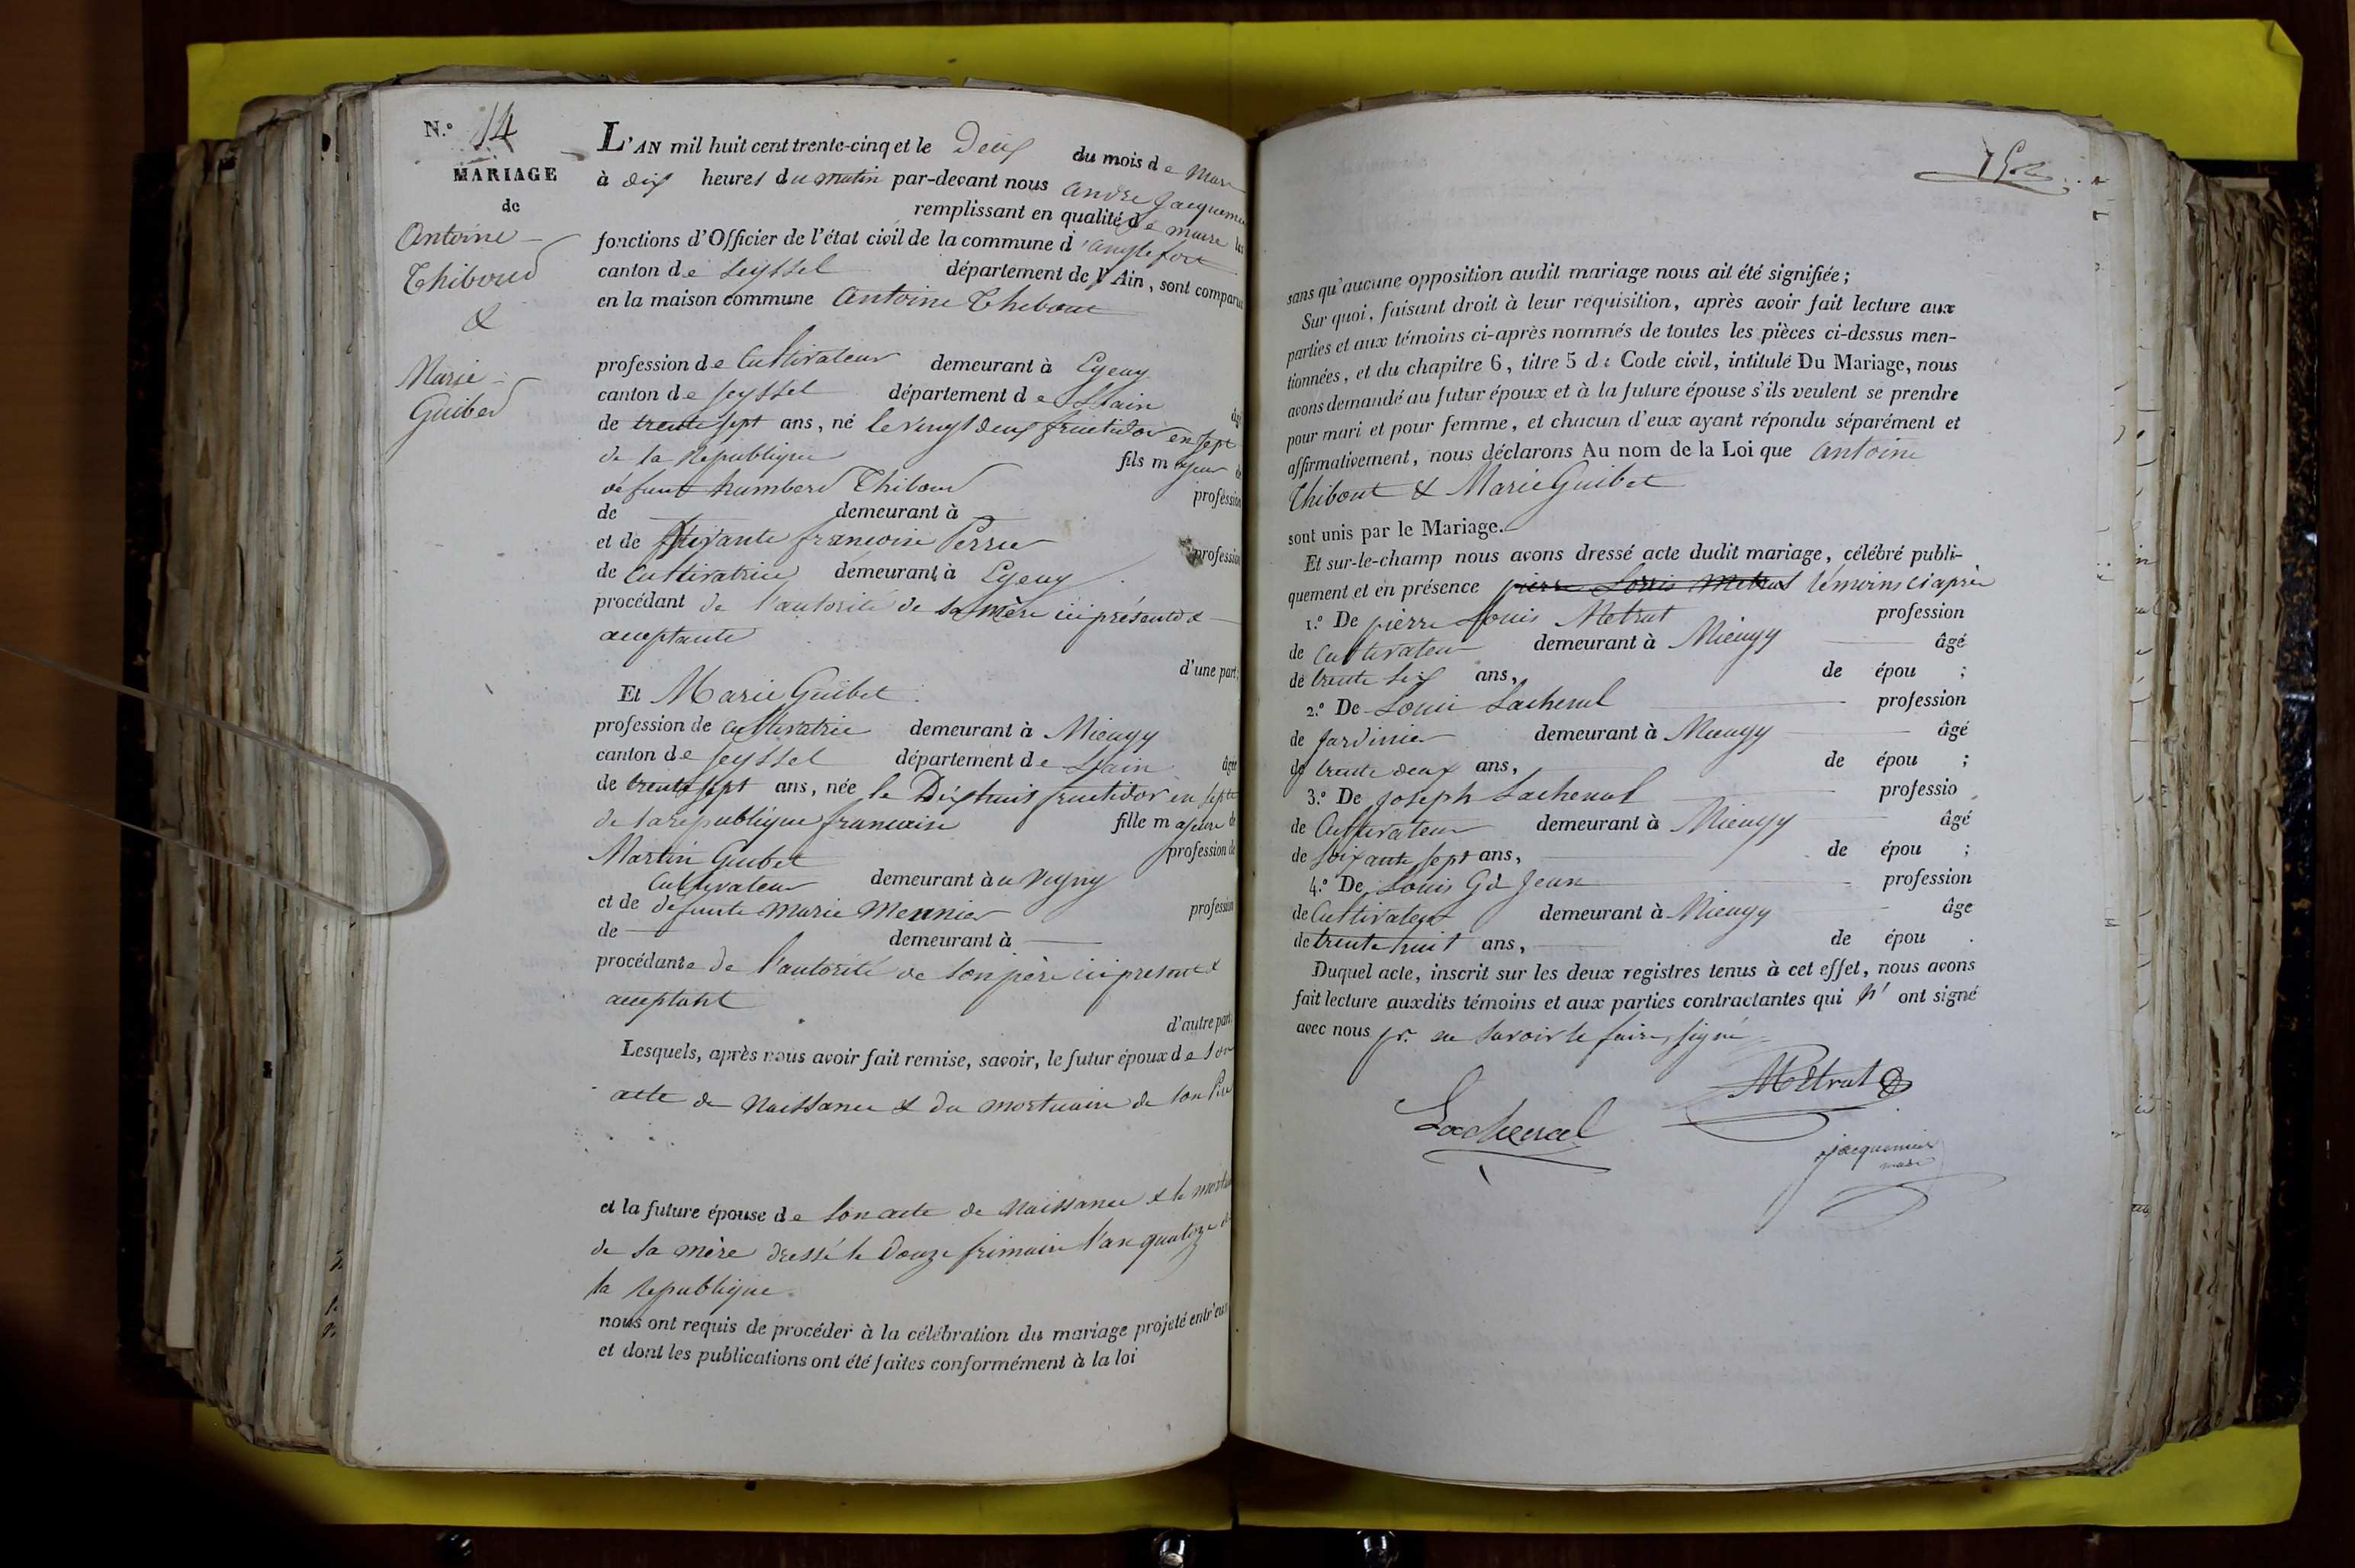 N.° 14
MARIAGE
de
Antoine
Thiboud
&
Marie
Guibed
L'AN mil huit cent trente-cinq et le Deux du mois de Mars
à dix heures du matin par-devant nous andré Jacquemier
remplissant en qualité de maire les
fonctions d'Officier de l'état civil de la commune d'anglefort
canton de Seyssel département de l'Ain, sont comparus
en la maison commune Antoine Thibout
profession de Cultivateur demeurant à
canton de Seyssel département de Lain âgé
de trente sept ans, né le vingt deux fructidor en sept
de la Republique fils majeur de
défunt humberd Thiboud profession
de demeurant à
et de françoise Perru profession
de Cultivatrice demeurant à
procédant de l'autorité de sa mère ici présente &
acceptante
d'une part;
Et Marie Guibet
profession de cultivatrice demeurant à Mieugy
canton de Seyssel département de Lain âgée
de trente sept ans, née le Dixhuit fructidor en sept
de la republique francaise fille majeure de
Martin Guibet profession de
Cultivateur demeurant à
et de défunte marie Mennier profession
de demeurant à
procédante de l'autorité de son père ici present &
acceptant
d'autre part.
Lesquels, après nous avoir fait remise, savoir, le futur époux de son
acte de Naissance & du mortuaire de son Père
et la future épouse de son acte de Naissance & le mortuaire
de sa mère dressé le Douze frimaire l'an quatorze de
la Republique.
nous ont requis de procéder à la célébration du mariage projeté entr'eux
et dont les publications ont été faites conformément à la loi
sans qu'aucune opposition audit mariage nous ait été signifiée;
Sur quoi, faisant droit à leur réquisition, après avoir fait lecture aux
parties et aux témoins ci-après nommés de toutes les pièces ci-dessus men-
tionnées, et du chapitre 6, titre 5 du Code civil, intitulé Du Mariage, nous
avons demandé au futur époux et à la future épouse s'ils veulent se prendre
pour mari et pour femme, et chacun d'eux ayant répondu séparément et
affirmativement, nous déclarons Au nom de la Loi que Antoine
Thibout & Marie Guibet
sont unis par le Mariage.
Et sur-le-champ nous avons dressé acte dudit mariage, célébré publi-
quement et en présence pierre Louis Metrat témoins ci après
1.° De pierre Louis Metrat profession
de Cultivateur demeurant à Mieugy âgé
de trente six ans, de épou ;
2.° De Louis Lachenal profession
de Jardinier demeurant à Mieugy âgé
de trente deux ans, de épou ;
3.° De Joseph Lachenal professio
de Cultivateur demeurant à Mieugy âgé
de soixante sept ans, de épou ;
4.° De Louis Gd Jean profession
de Cultivateur demeurant à Mieugy âgé
de trente huit ans, de épou .
Duquel acte, inscrit sur les deux registres tenus à cet effet, nous avons
fait lecture auxdits témoins et aux parties contractantes qui n' ont signé
avec nous pr. ne savoir le faire, signé
Metrat
Lachenal
jacquemier
maire